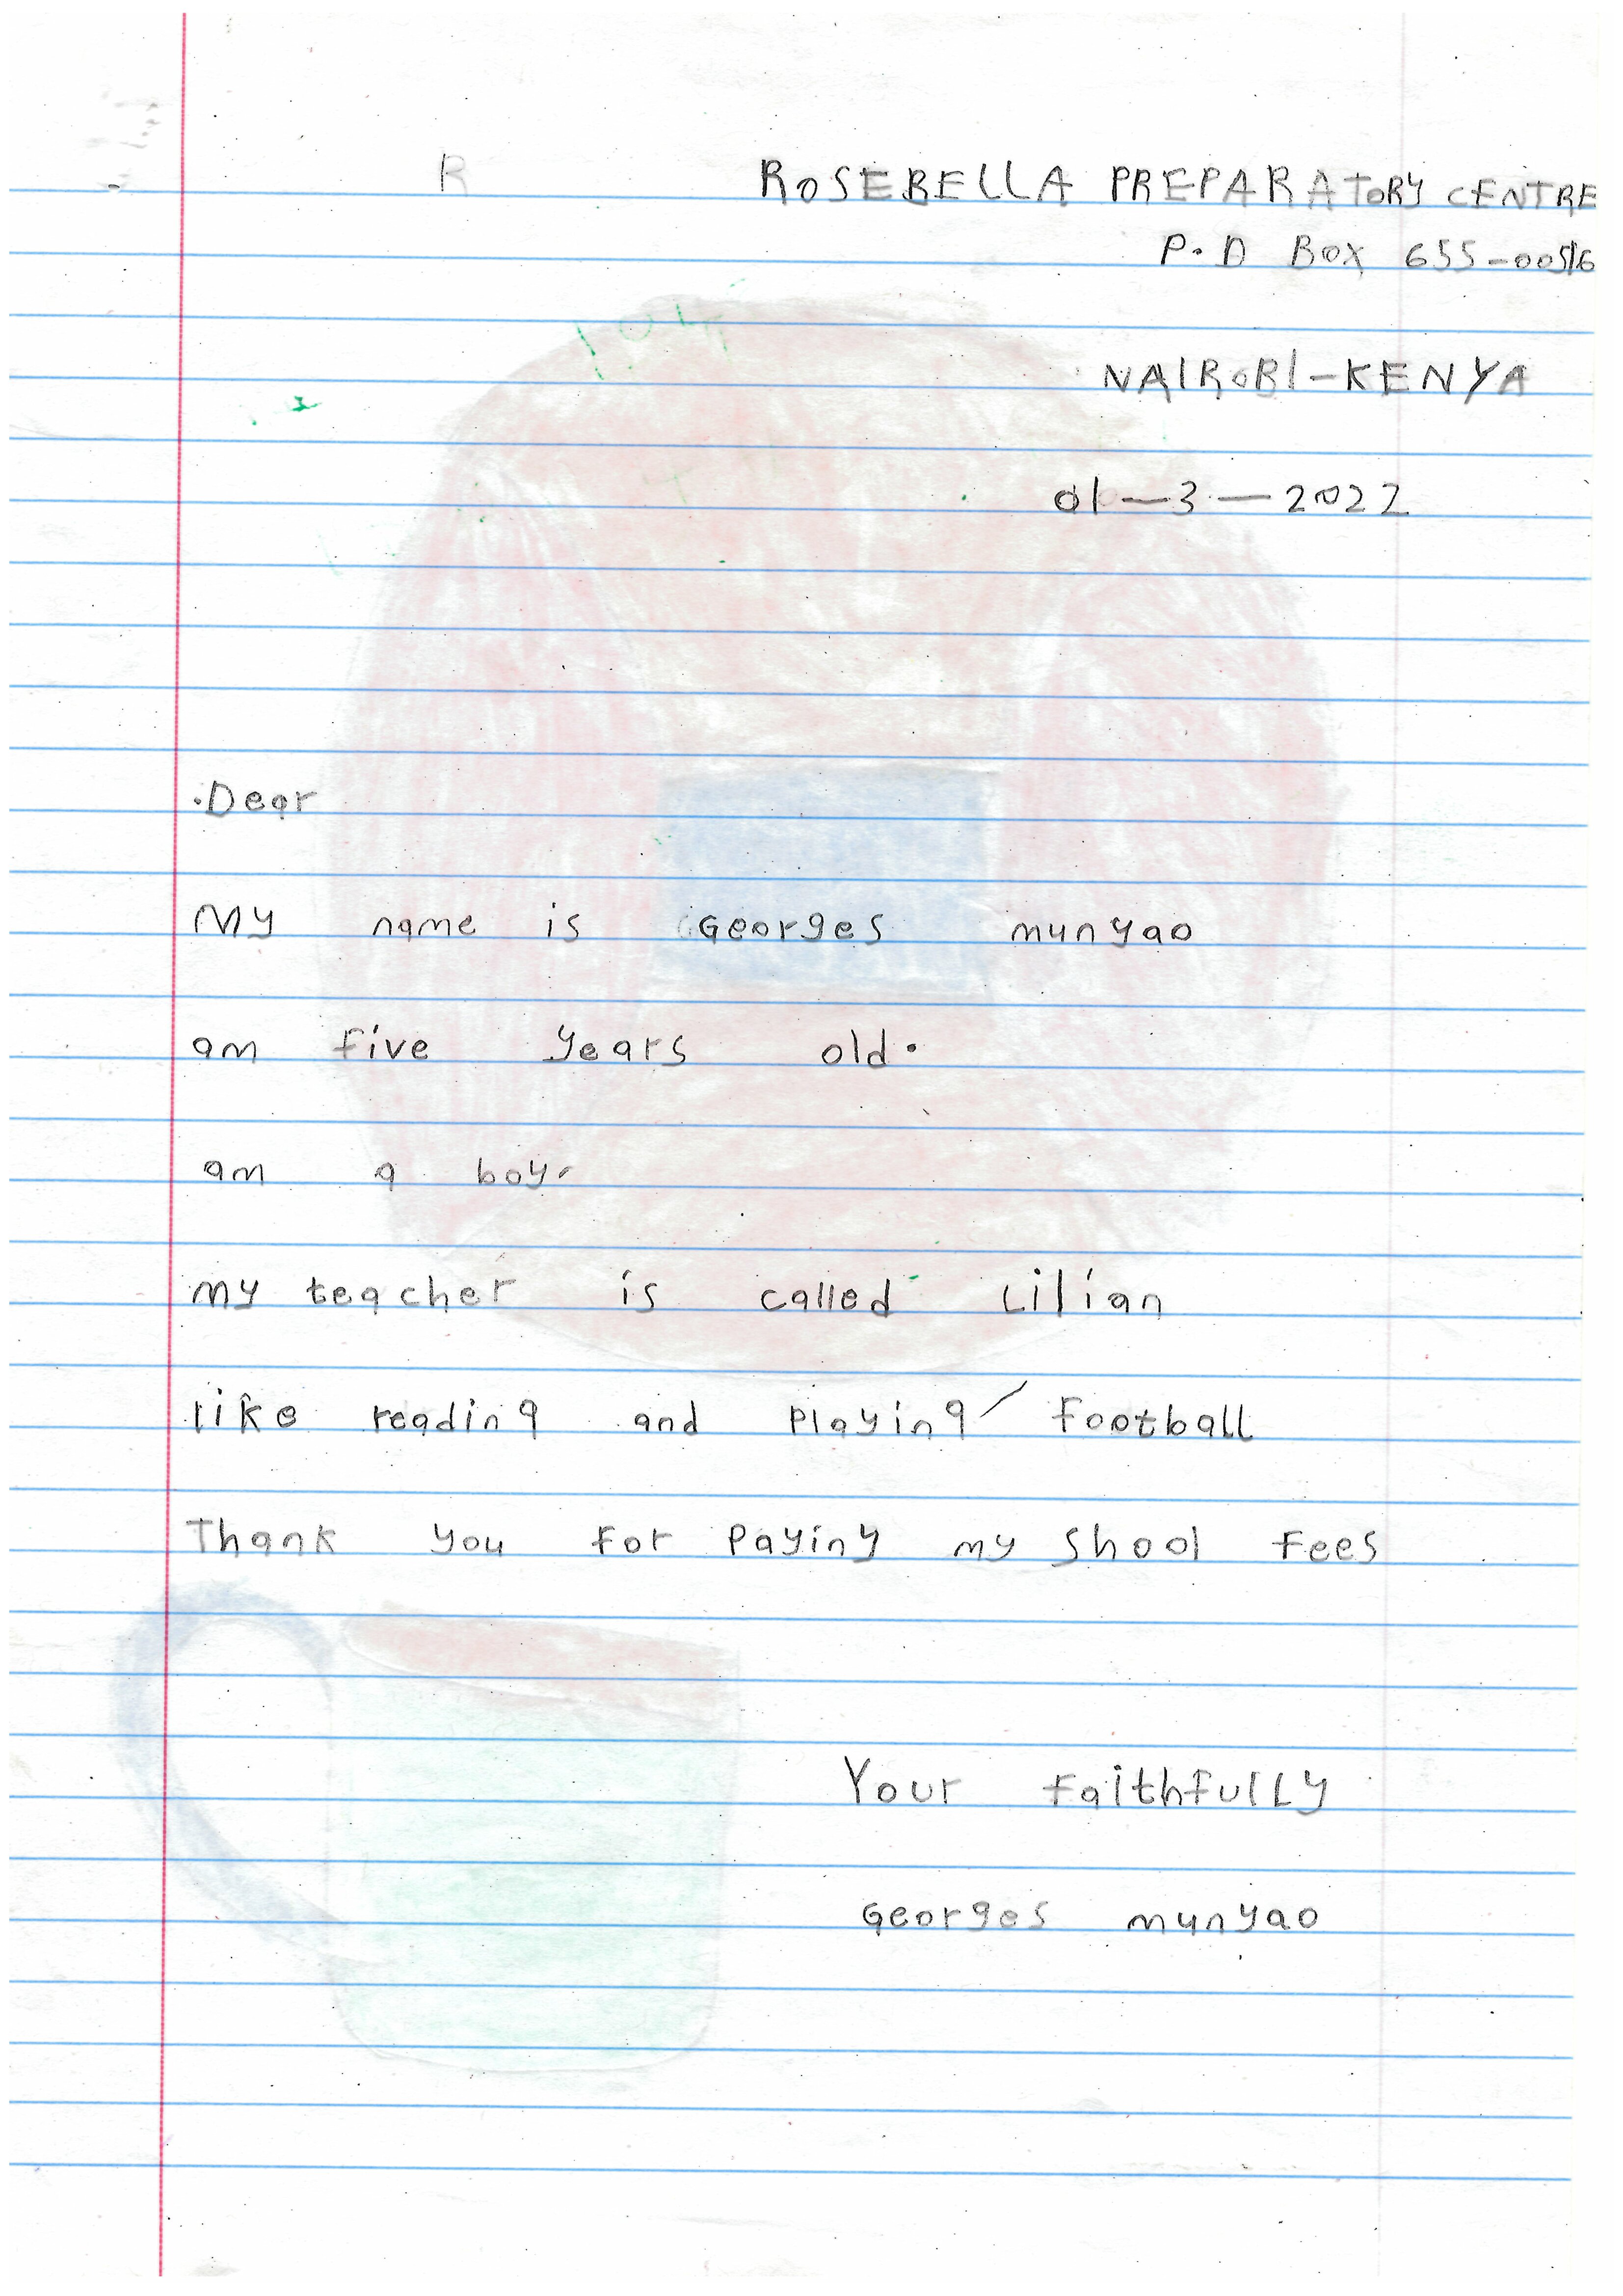 R ROSEBELLA PREPARATORY CENTRE
P.O Box 655-00516
NAIROBI-KENYA
01-3-2022
.Dear
My name is Georges munyao
am five years old.
am a boy.
my teacher is called Lilian
like reading and playing football
Thank you for Paying my shool fees
Your faithfully
Georges munyao